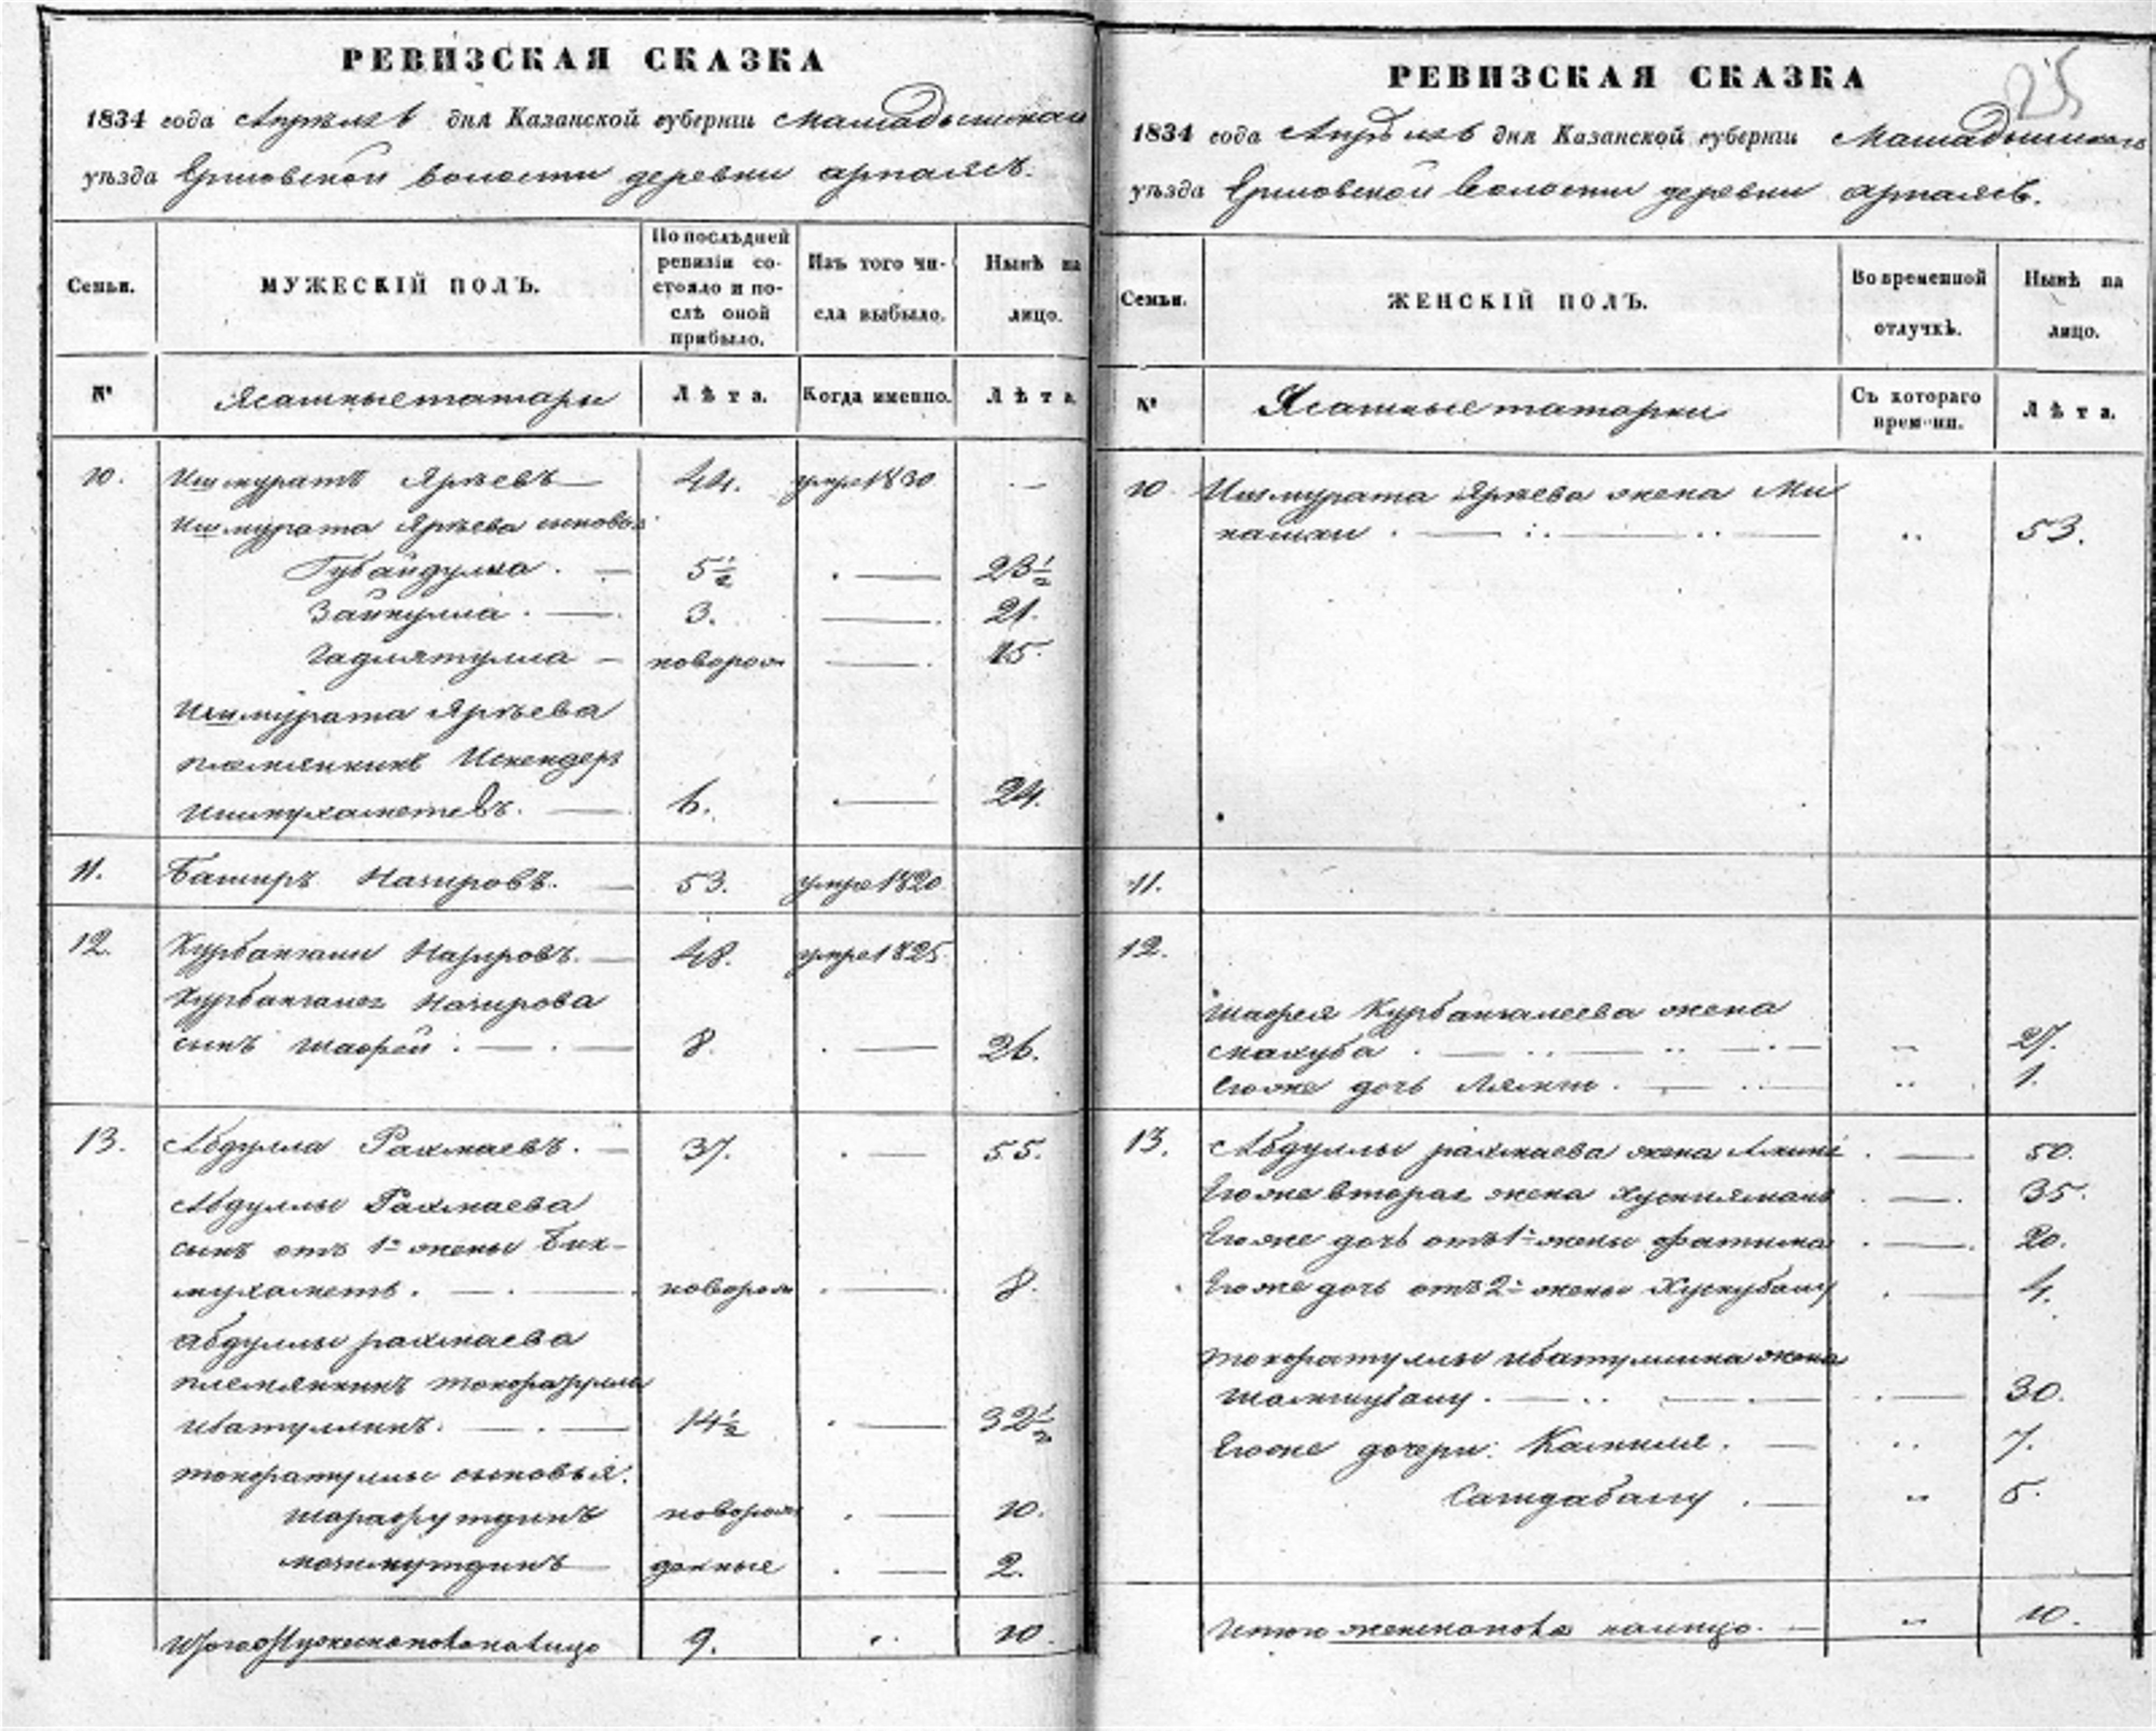 РЕВИЗСКАЯ СКАЗКА
1834 года Апреля дня Казанской губернии Мамадышскаго
уѣзда Ершовской волости деревни арпаясъ.
Семьи.
МУЖЕСКІЙ ПОЛЪ.
По послѣдней
ревизіи со-
стояло и по-
слѣ оной
прибыло.
Изъ того чи-
сла выбыло.
Нынѣ на
лицо.
№
Ясашные татары
Лѣта.
Когда именно.
Лѣта.
10. Ишмуратъ Яркѣевъ — 44. умре 1830 —
Ишмурата Яркѣева сыновья
Губайдулла. — 5½ . — 23½
Зайнулла. — 3. — 21.
Гадлятулла — новорож — 15.
Ишмурата Яркѣева
племянникъ Искендеръ
Ишмухаметевъ. — 6. . — 24.
11. Баширъ Назировъ. — 53. умре 1820
12. Курбангали Назировъ. — 48. умре 1825
Курбангалея Назирова
сынъ Шафей . — . — 8. . — 26.
13. Абдулла Рахмаевъ. — 37. . — 55.
Абдуллы Рахмаева
сынъ отъ 1й жены Бик-
мухаметъ. — . — новорож . — 8.
абдуллы рахмаева
племянникъ
ибатуллинъ. — . — 14½ . — 32½
тохфатуллы сыновья:
шарафутдинъ новорож . — 10.
денные . — 2.
Итого мужеска пола на лицо 9. „. 10.
РЕВИЗСКАЯ СКАЗКА
25
1834 года Апреля дня Казанской губерніи Мамадышскаго
уѣзда Ершовской волости деревни арпаясъ.
Семьи.
ЖЕНСКІЙ ПОЛЪ.
Во временной
отлучкѣ.
Нынѣ на
лицо.
№
Ясашные татарки
Съ котораго
времени.
Лѣта.
10 Ишмурата Яркѣева жена Ми
„ 53.
11.
12.
Шафея Курбангалеева жена
Махуба . — „ 27.
Его же дочь . — „ 1.
13. Абдуллы рахмаева жена . — 50.
Его же вторая жена . — . 35.
Его же дочь отъ 1й жены фатима . — . 20.
Его же дочь отъ 2й жены Хуснубану . — 4.
тохфатуллы ибатуллина жена
. — „ . — 30.
Его же дочери: Камиля. — „ 7.
Сагидабану . — „ 5.
Итого женска пола налицо. — „ 10.